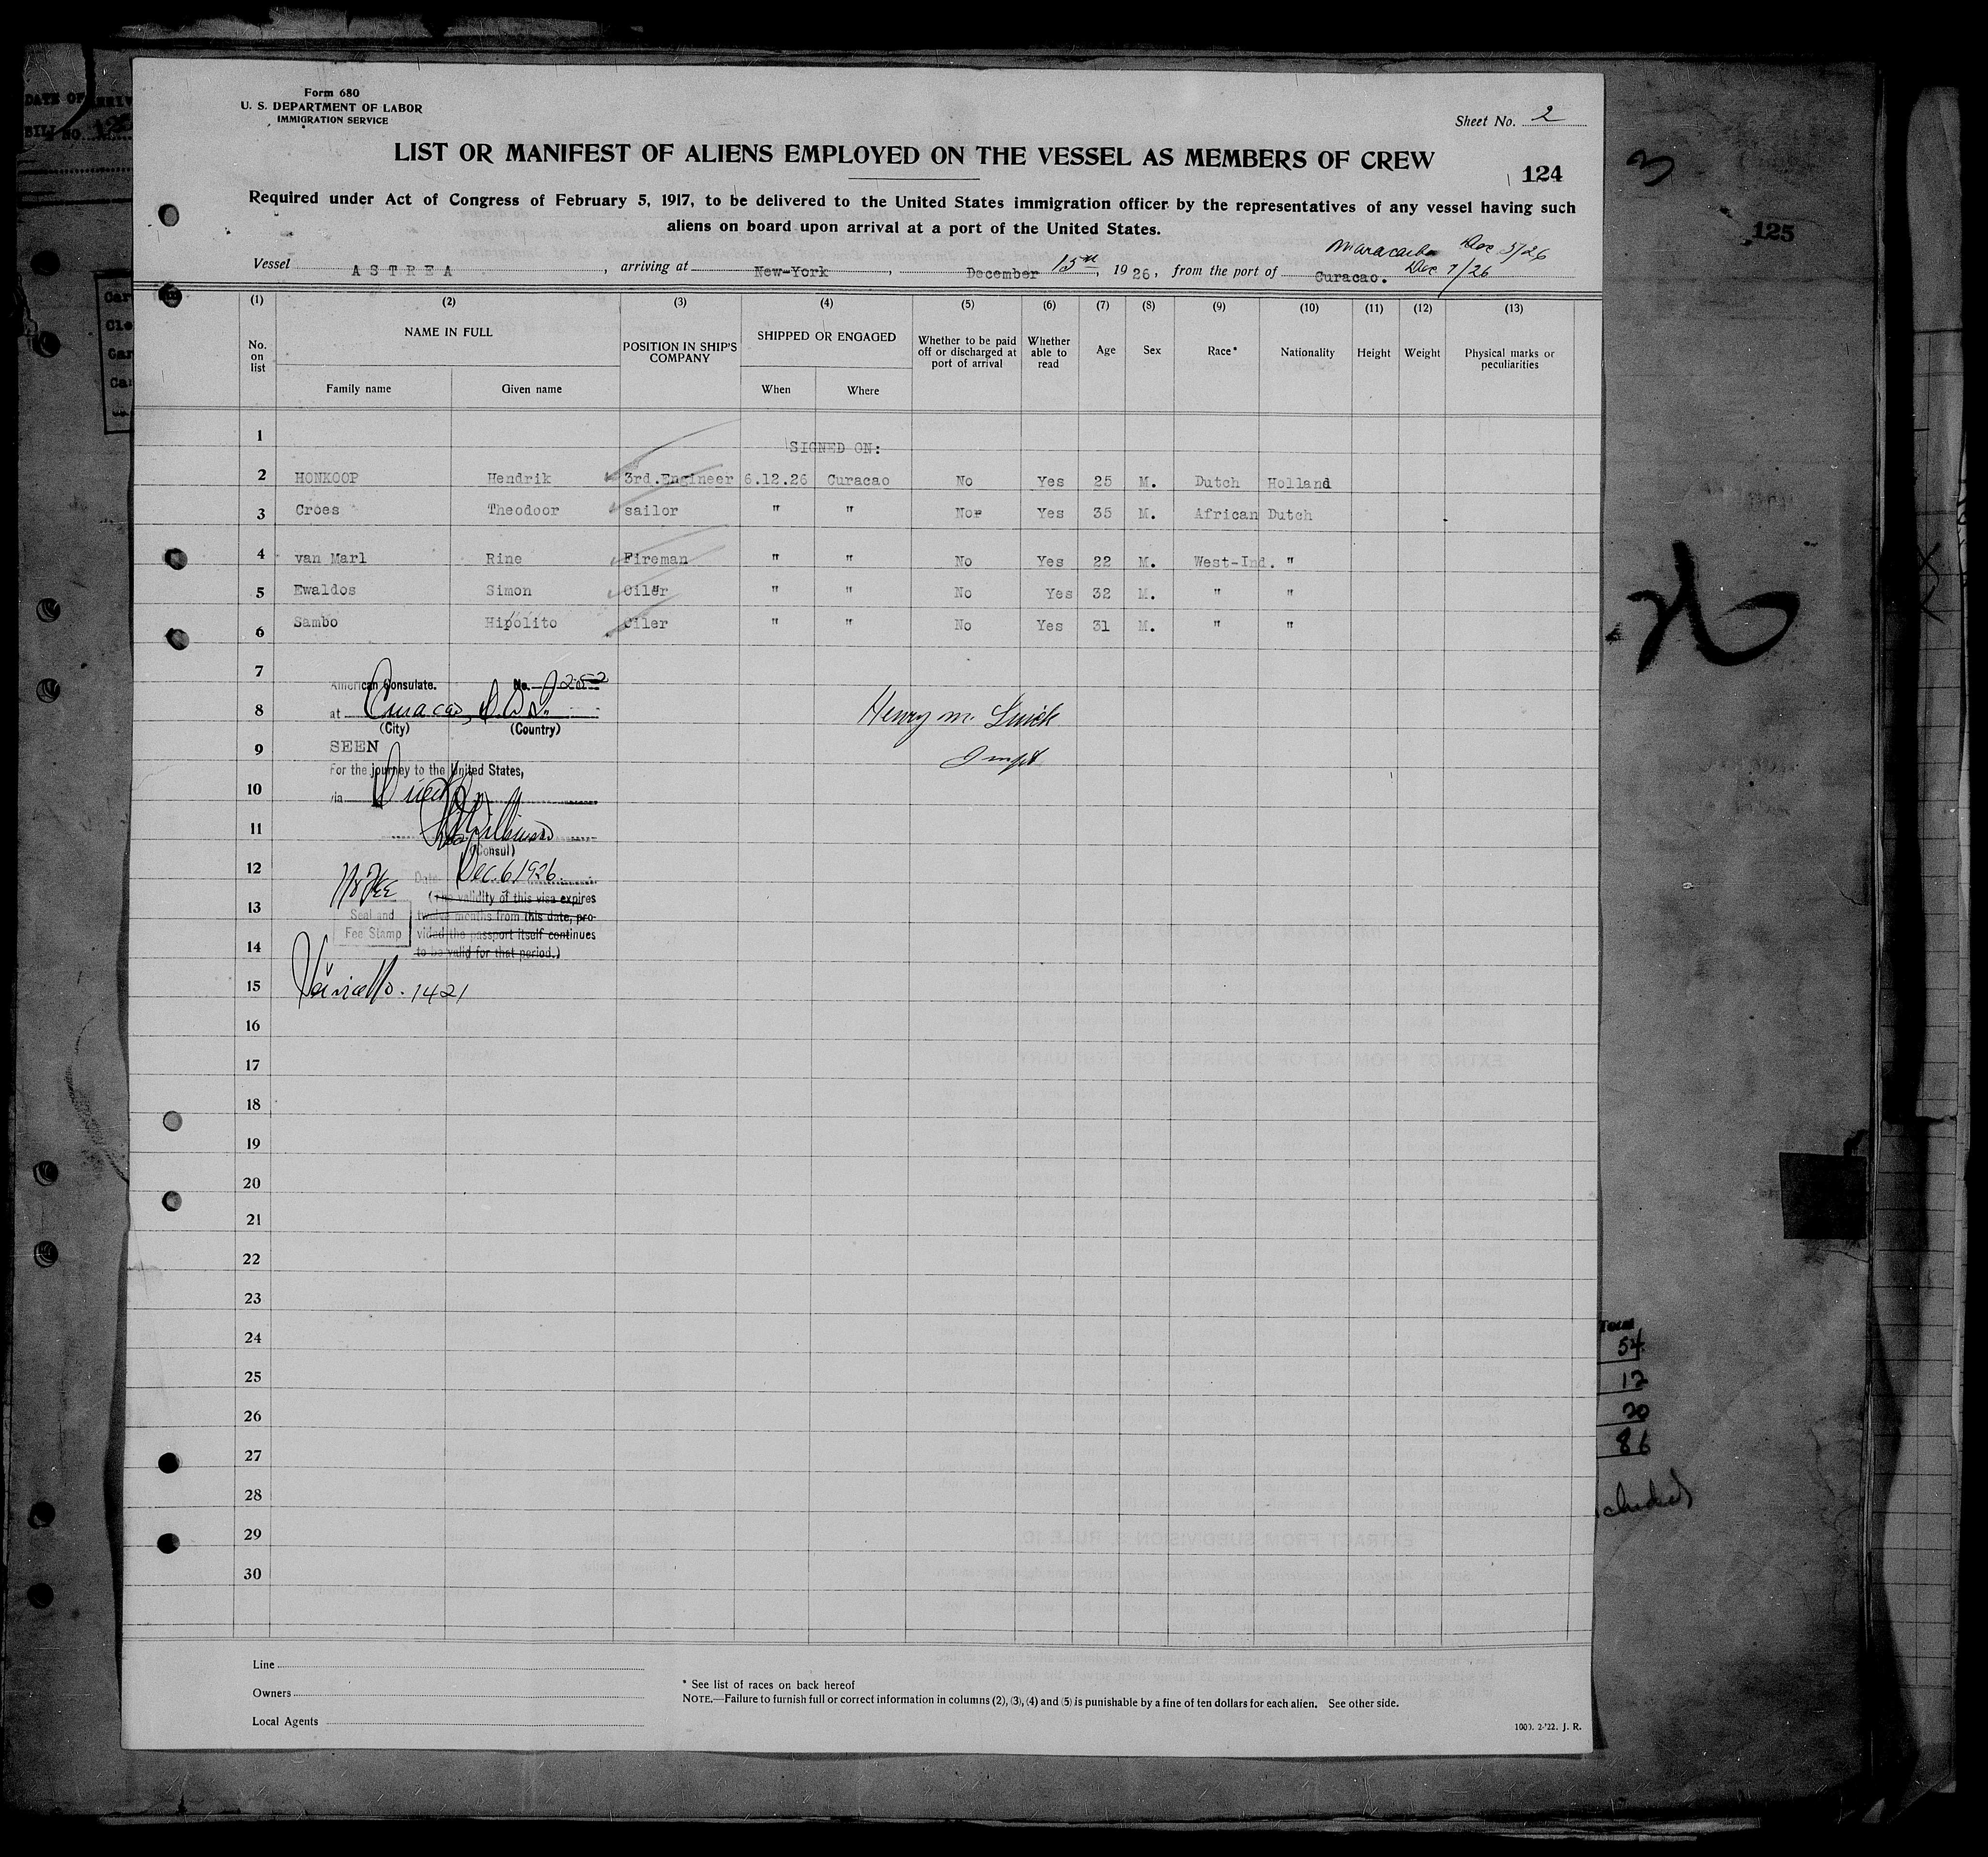 Form 680
U. S. DEPARTMENT OF LABOR
IMMIGRATION SERVICE
Sheet No. 2
LIST OR MANIFEST OF ALIENS EMPLOYED ON THE VESSEL AS MEMBERS OF CREW
124
Required under Act of Congress of February 5, 1917, to be delivered to the United States immigration officer by the representatives of any vessel having such
aliens on board upon arrival at a port of the United States.
Maracaibo Dec 3/26
Vessel ASTREA, arriving at New-York, December 15th, 1926, from the port of Curacao. Dec 7/26
(1) (2) (3) (4) (5) (6) (7) (8) (9) (10) (11) (12) (13)
No. on list NAME IN FULL Family name Given name POSITION IN SHIP'S COMPANY SHIPPED OR ENGAGED When Where Whether to be paid off or discharged at port of arrival Whether able to read Age Sex Race* Nationality Height Weight Physical marks or peculiarities
1 SIGNED ON:
2 HONKOOP Hendrik 3rd.Engineer 6.12.26 Curacao No Yes 25 M. Dutch Holland
3 Croes Theodoor sailor " " No Yes 35 M. African Dutch
4 van Marl Rine Fireman " " No Yes 22 M. West-Ind. "
5 Ewaldos Simon Oiler " " No Yes 32 M. " "
6 Sambo Hipólito Oiler " " No Yes 31 M. " "
7
American Consulate. No.
8
at Curacao, D.W.I.
(City) (Country)
Henry M.
9
SEEN
For the journey to the United States,
10
via Direct
11
(Consul)
12
Date Dec. 6 1926
No Fee
(The validity of this visa expires
13
Seal and Fee Stamp
twelve months from this date, pro-
vided the passport itself continues
14
to be valid for that period.)
15
1421
16
17
18
19
20
21
22
23
24
25
26
27
28
29
30
Line
Owners
Local Agents
* See list of races on back hereof
NOTE.—Failure to furnish full or correct information in columns (2), (3), (4) and (5) is punishable by a fine of ten dollars for each alien. See other side.
1000. 2-'22. J. R.
3
125
Total
54
12
20
86